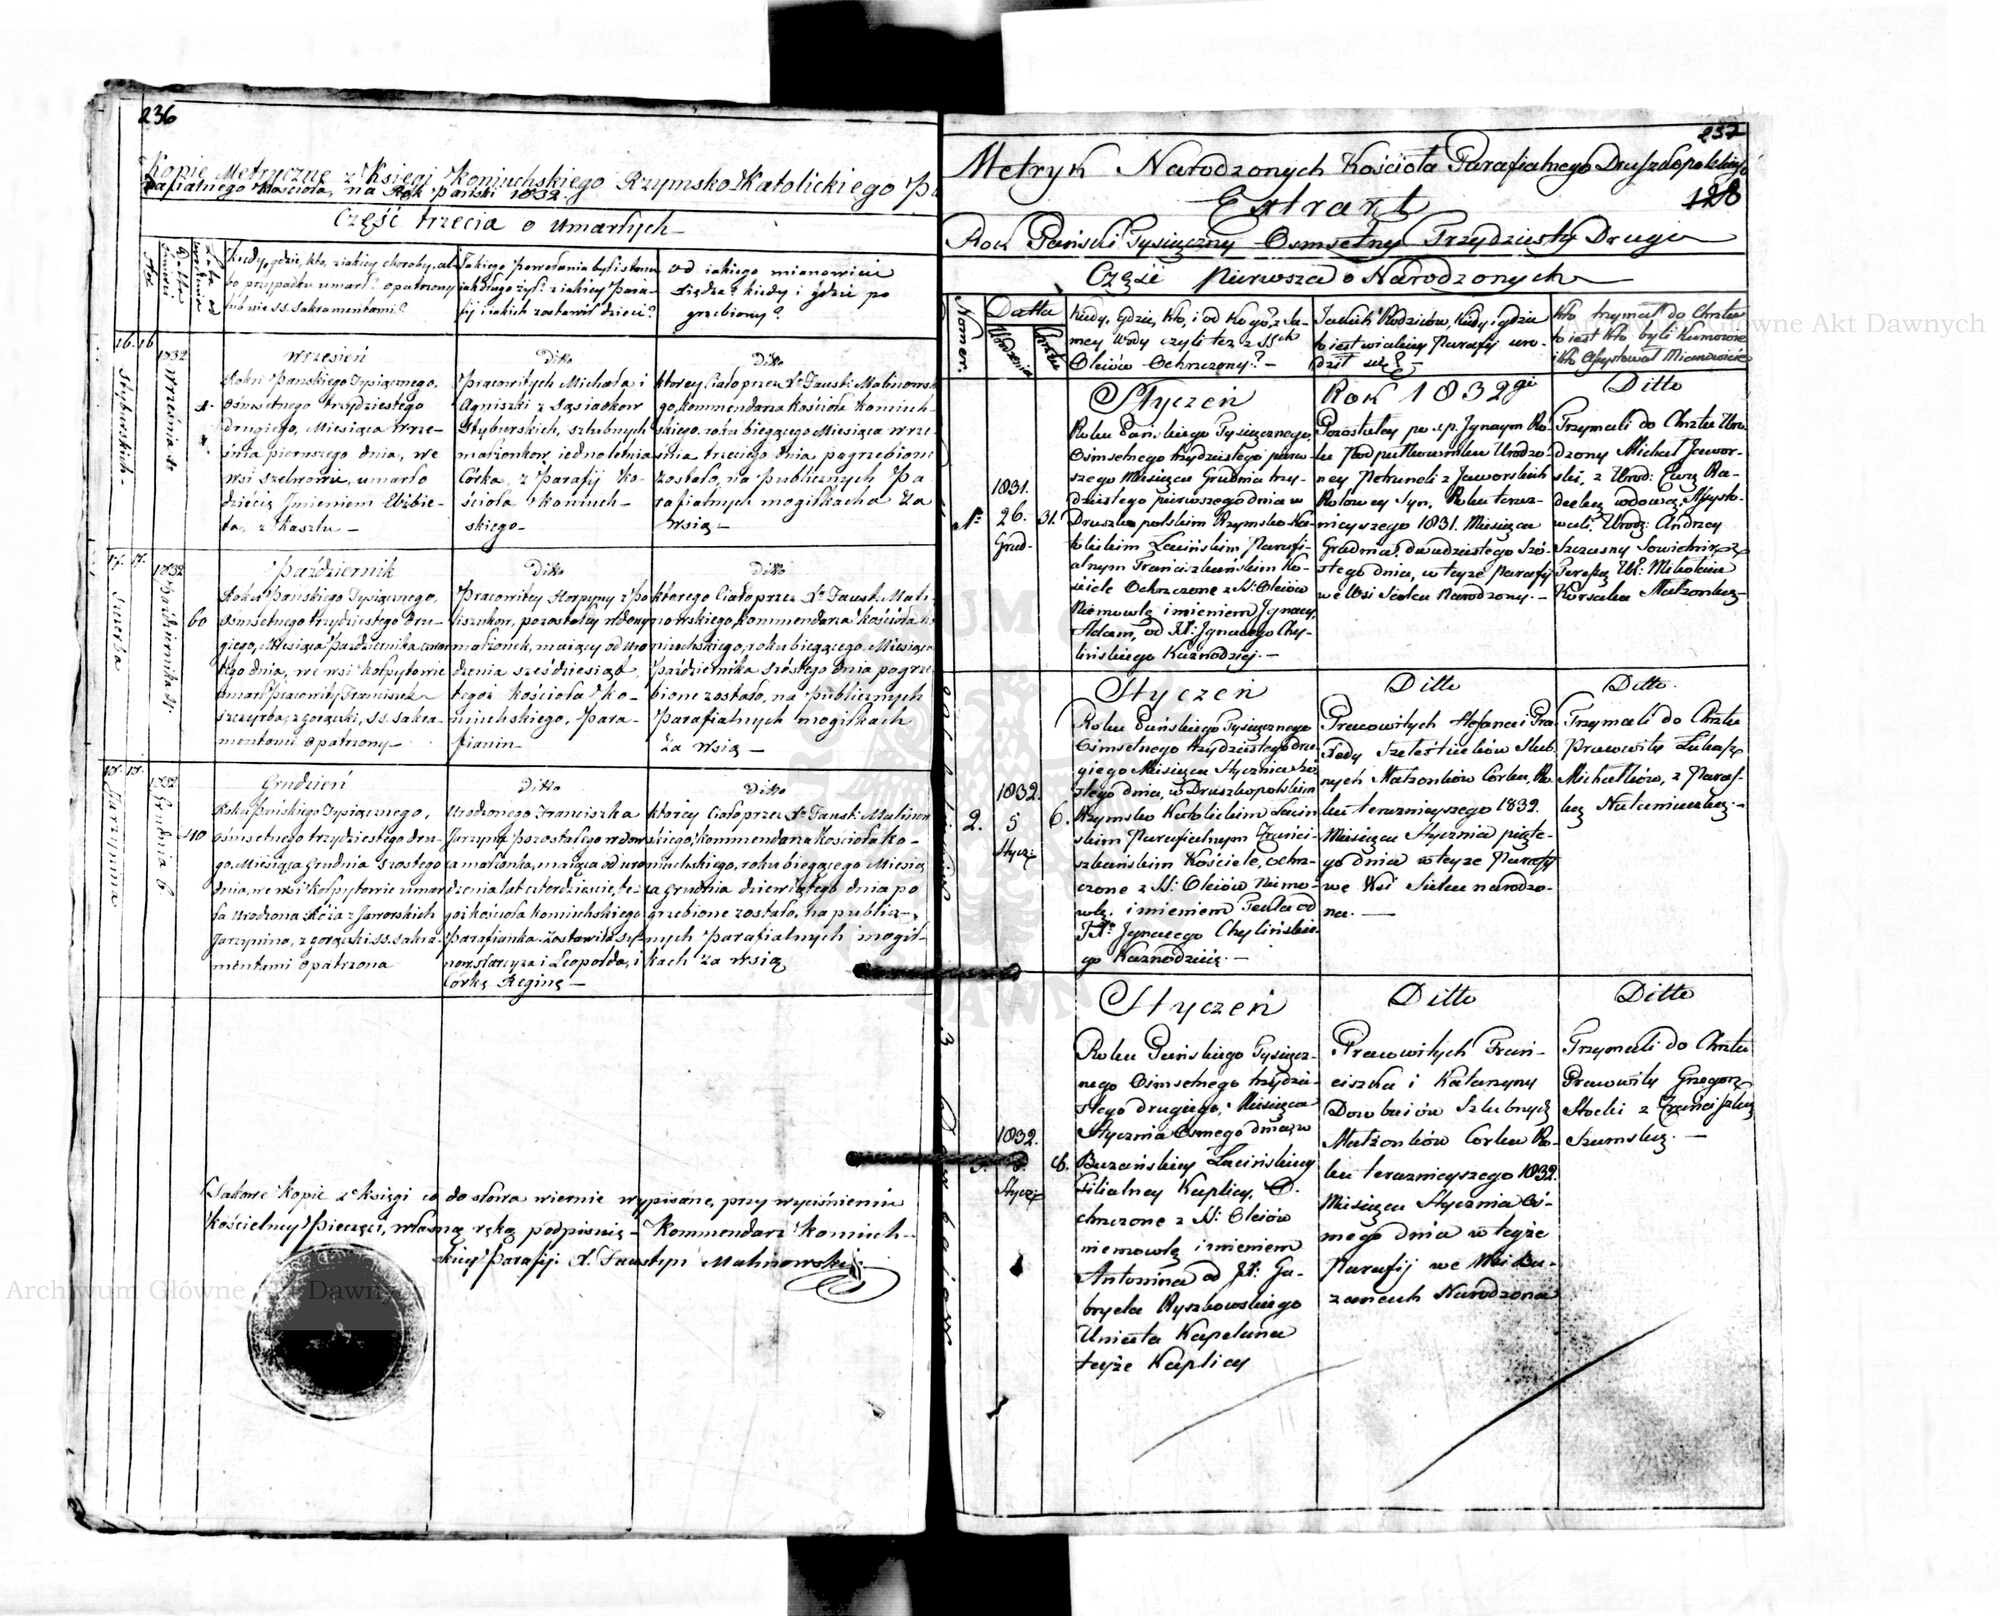 236
Kopie Metryczne z Księgi Koniuchskiego Rzymsko Katolickiego Pa
rafialnego Kościoła, na Rok Pański 1832.
Część trzecia o umarłych
Kiedy, gdzie, kto, z iakiey choroby, al
bo przypadku umarł? opatrzony
lub nie SS. Sakramentami?
Jakiego powołania był i stanu
iak długo żył? z iakiey Para-
fij i iakich zostawił dzieci?
od iakiego mianowicie
Xiędza? kiedy i gdzie po
grzebiony?
16. 16
Styburskich
1832 Września 1
1.
Wrzesień
Roku Pańskiego Tysiącznego,
Ośmsetnego trzydziestego
drugiego, Miesiąca Wrze-
śnia pierwszego dnia, we
wsi Szelwowie, umarło
dziecię Imieniem Elżbie-
ta, z kaszlu
Ditto
Pracowitych Michała i
Agniszki z Sąsiadkow
Styburskich, szlubnych
małżonkow iednoletnia
Córka, z Parafij Ko-
ścioła Koniuch-
skiego
Ditto
ktorey Ciało przez X. Faust: Malinowsk
go, kommendarza Kościoła Koniuch-
skiego, roku bieżącego Miesiąca wrze-
śnia trzeciego dnia pogrzebione
zostało, na Publicznych Pa-
rafialnych mogiłkach Za
Wsią
17. 17.
1832 Października 4.
60
Październik
Roku Pańskiego Tysiącznego,
Ośmsetnego trzydziestego dru-
giego, Miesiąca Października czwar
tego dnia, we wsi Kołpytowie
umarł Pracowity Franciszek
Szczyrba, z gorączki, SS. Sakra-
mentami opatrzony
Ditto
Pracowitey Horpyny z Po
liszukow, pozostałey wdowy
małżonek, maiący od uro
dzenia sześdziesiąt,
tegoż Kościoła Ko-
niuchskiego, Para-
fianin
Ditto
ktorego Ciało przez X. Faust: Mali-
nowskiego, kommendarza Kościoła Ko
niuchskiego, roku bieżącego Miesiąca
Października szóstego dnia pogrze
bione zostało, na Publicznych
Parafialnych mogiłkach
Za Wsią
18. 18.
Jarzynina
1832 Grudnia 6.
40
Grudzień
Roku Pańskiego Tysiącznego,
ośmsetnego trzydziestego dru-
go, Miesiąca Grudnia szostego
dnia, we wsi Kołpytowie umar
ła Urodzona Róża z Jaworskich
Jarzynina, z gorączki, SS. Sakra-
mentami opatrzona
Ditto
Urodzonego Franciszka
Jarzyny pozostałego wdow
ca małżonka, maiąca od uro
dzenia lat czterdzieście, te-
goż Kościoła Koniuchskiego
Parafianka. Zostawiła Sy-
now i Leopolda, i
Córkę Reginę
Ditto
ktorey Ciało przez X. Faust: Malinow
skiego, kommendarza Kościoła Ko-
niuchskiego, roku bieżącego Miesią
ca Grudnia dziewiątego dnia po
grzebione zostało, na publicz-
nych Parafialnych mogił-
kach Za Wsią
Takowe Kopie z Księgi co do słowa wiernie wypisane, przy wyciśnieniu
Kościelney Pieczęci, własną ręką podpisuię Kommendarz Koniuch-
skiey Parafij X. Faustyn Malinowski
237
128
Metryk Narodzonych Kościoła Parafialnego Druszkopolskiego
Extrakt
Rok Pański Tysiączny Osmsetny Trzydziesty Drugi
Częśc Pierwsza o Narodzonych
Numer
Datta
Urodzenia
Chrztu
Kiedy, Gdzie, Kto, i od Kogo, z Sa-
mey Wody czyli też z SSch
Oleiów Ochrzczony?
Jakich Rodziców, Kiedy i gdzie
to iest w iakiey Parafij uro-
dził się?
Kto trzymał do Chrztu
to iest Kto byli Kumowie
i Kto Assystował Mianowicie
1831.
26.
Grud.
31.
Styczeń
Roku Pańskiego Tysiącznego
Ośmsetnego trzydziestego pierw-
szego Miesiąca Grudnia trzy-
dziestego pierwszego dnia w
Druszkopolskim Rzymsko Ka-
tolickim Łacińskim Parafi-
alnym Franciszkańskim Ko-
ściele Ochrzczone z SS: Oleiów
Niemowlę imieniem Ignacy,
Adam, od JX: Ignacego Chy-
lińskiego Kaznodziej.
Rok 1832gi
Pozostałey po s.p. Ignacym Ro-
lu Podpułkowniku Urodzo-
ney Petruneli z Jaworskich
Rolowey Syn, Roku teraz-
nieyszego 1831. Miesiąca
Grudnia, dwudziestego Szó-
stego dnia, w teyże Parafij
we Wsi Sielcu Narodzony.
Ditto
Trzymali do Chrztu Uro
dzony Michał Jawor-
ski, z Urod: Ewą Ra-
decką wdową, Assysto-
wali: Urodz: Andrzey
Szczasny Sowietnik z
Teresą Ur: Mikołaia
Korsaka Małżonką
2.
1832.
5
Stycz:
6.
Styczeń
Roku Pańskiego Tysiącznego
Ośmsetnego trzydziestego dru-
giego Miesiąca Stycznia Szó-
stego dnia, w Druszkopolskim
Rzymsko Katolickim Łaciń
skim Parafialnym Franci-
szkańskim Kościele, ochrz-
czone z SS: Oleiów Niemo-
wlę, imieniem Tekla od
JX: Ignacego Chylińskie-
go Kaznodzieię.
Ditto
Pracowitych Stefana i Pra-
xedy Szub
nych Małżonków Corka, Ro-
ku teraznieyszego 1832.
Miesiąca Stycznia piąte-
go dnia w teyże Parafij
we Wsi Sielcu narodzo-
na.
Ditto.
Trzymali do Chrztu
Pracowity Łukasz
Michałków, z Paraś-
ką
1832.
Stycz:
8.
Styczeń
Roku Pańskiego Tysiącz-
nego Ośmsetnego trzydzie-
stego drugiego, Miesiąca
Stycznia Osmego dnia, w
Buzańskiey Łacińskiey
Filialney Kaplicy, O-
chrzczone z SS: Oleiów
niemowlę imieniem
Antonina od JX: Ga-
bryela Ryszkowskiego
Uniata Kapelana
teyże Kaplicy
Ditto
Pracowitych Fran-
ciszka i Katarzyny
Szlubnych
Małżonków Corka Ro-
ku teraznieyszego 1832.
Miesiąca Stycznia Oś-
mego dnia w teyże
Parafij we Wsi Bu-
zanach Narodzona
Ditto
Trzymali do Chrztu
Pracowity Grzegorz
Stocki z Franciszką
Szumską.
Archiwum Główne Akt Dawnych
Archiwum Główne Akt Dawnych